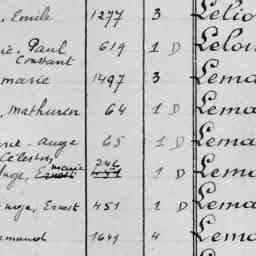 , Emile 1277 3 Lelio
ie. Paul 619 1 D Lelou
Constant
marie 1497 3 Lema
, Mathurin 64 1 D Lema
ne - ange 65 1 D Lema
Célestin
ange, Ernest marie 746 1 D Lema
ange, Ernest 451 1 D Lema
rmand 1649 4 Lema